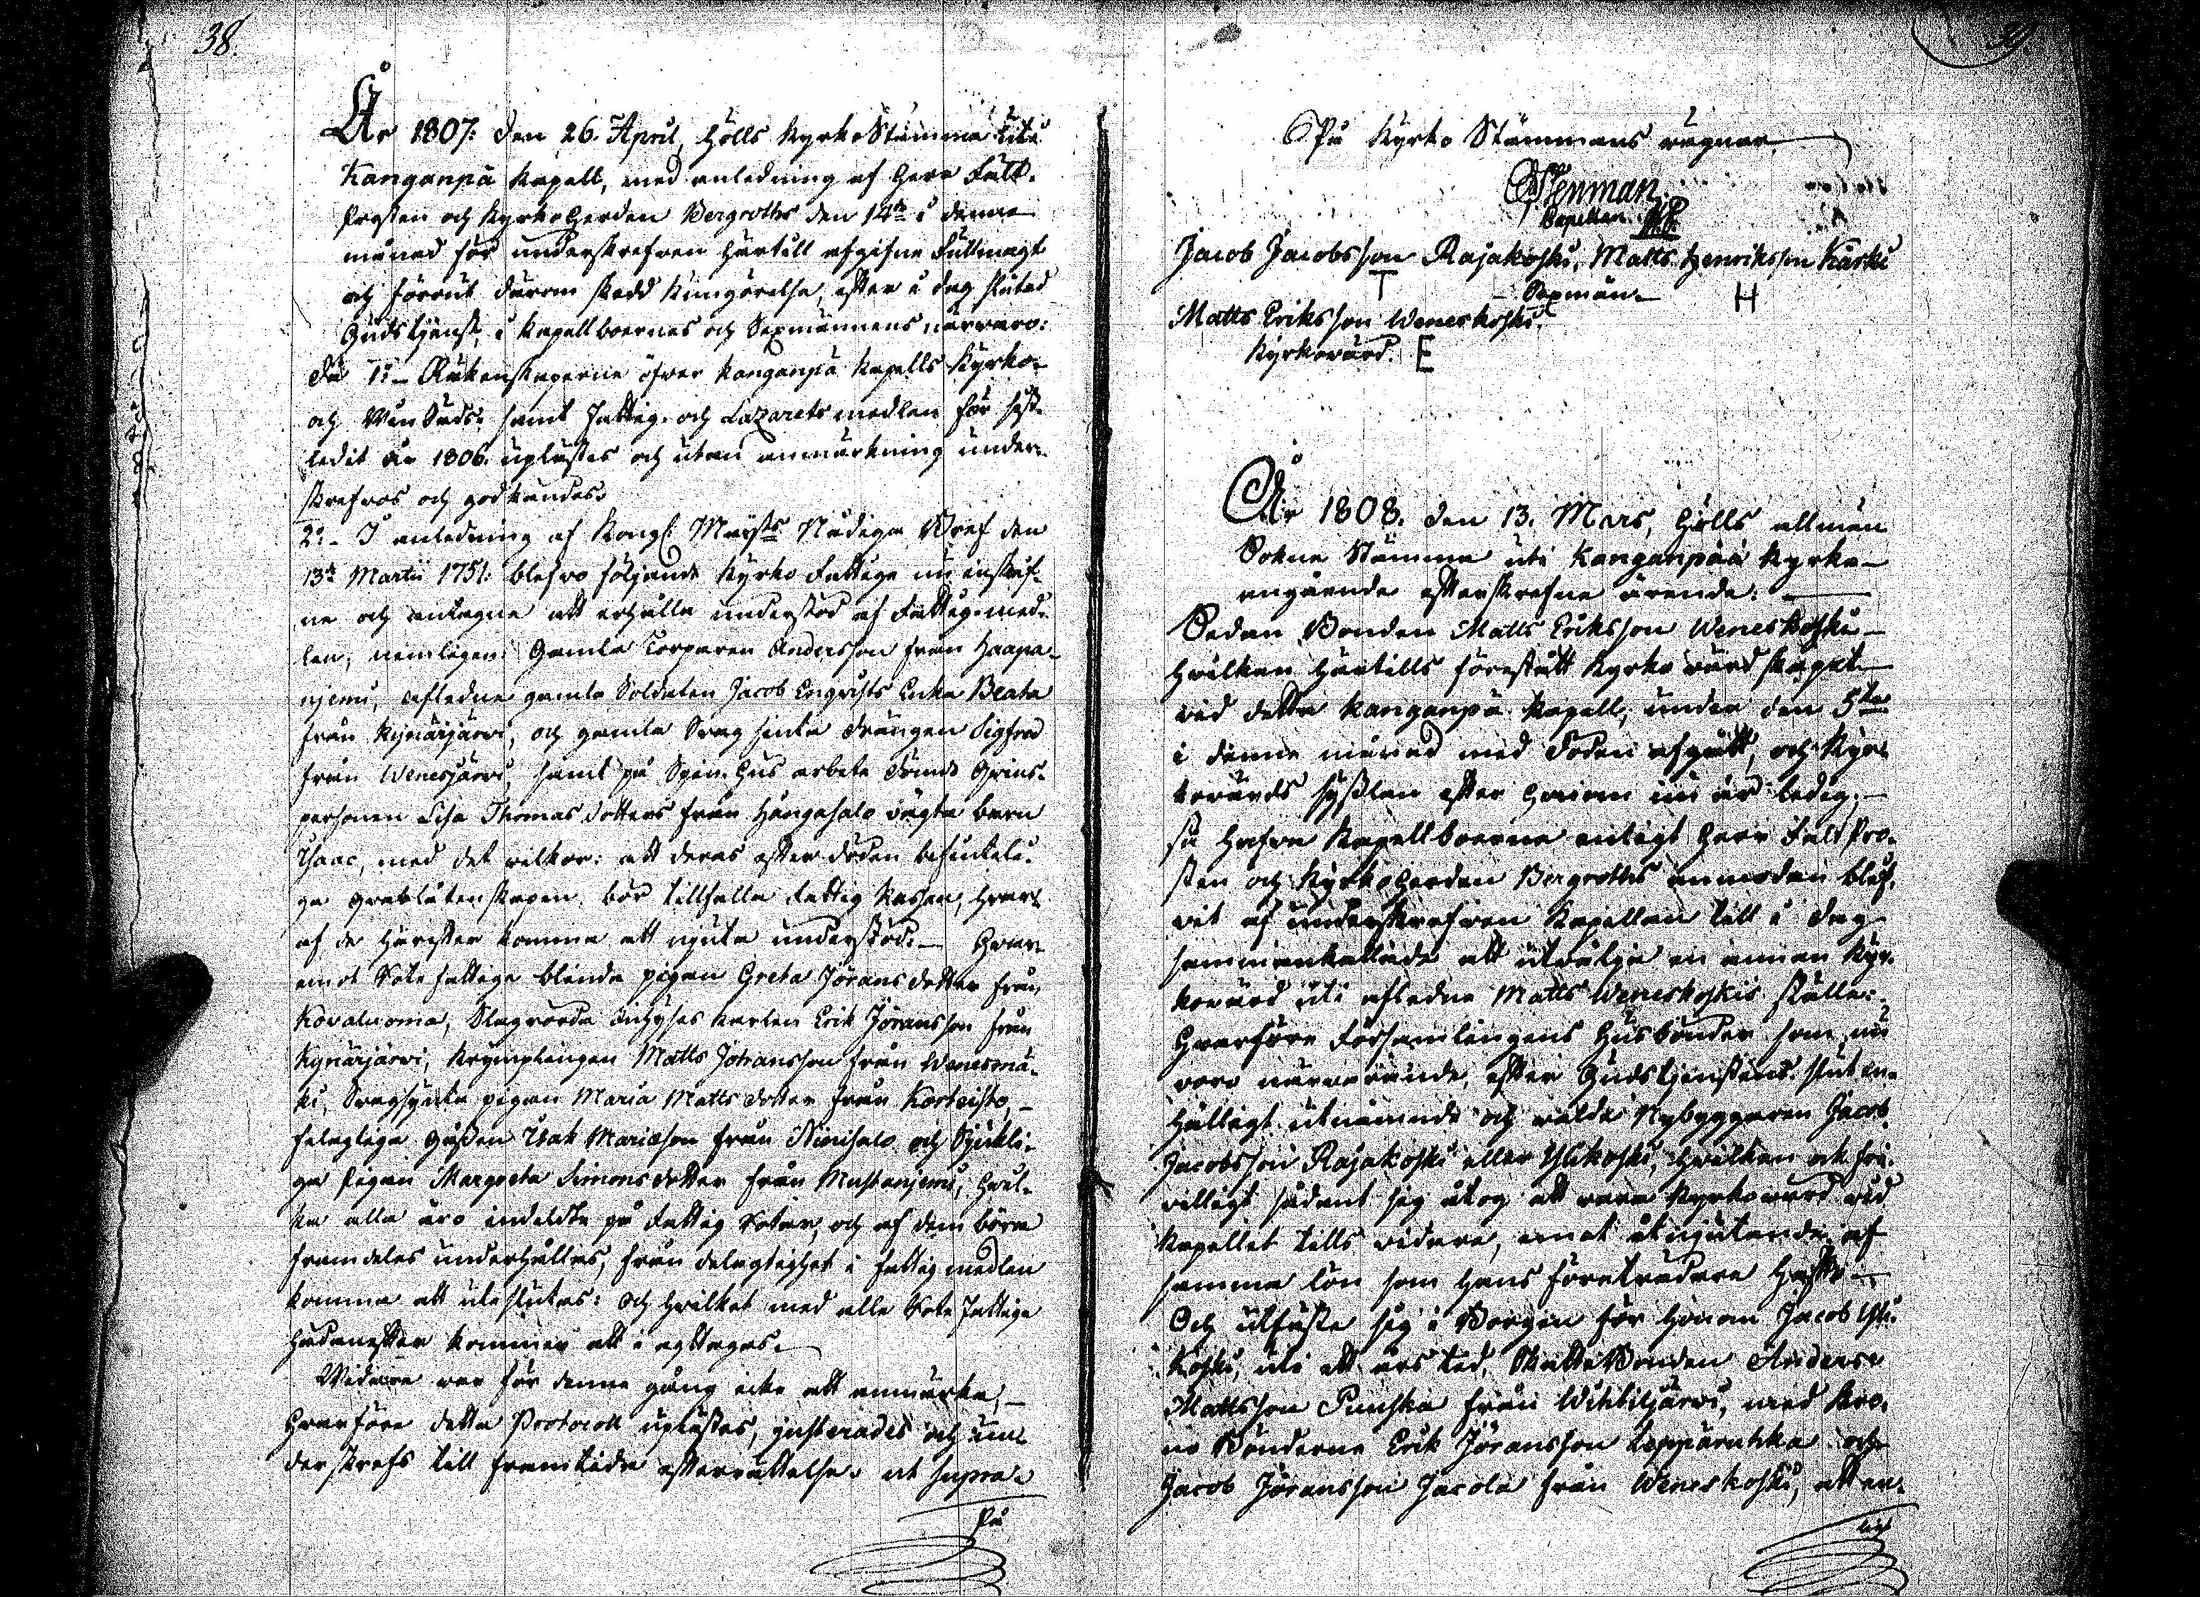 38.
År 1807. den 26. April, hölls Kyrko Stämma uti
Kanganpä Kapell, med anledning af Herr Fält-
Prosten och Kyrkoherden Bergroths den 14de i denne
månad för underskrefven härtill afgifne Fullmagt
och förrut därom skedd Kungörelse, efter i dag slutad
Gudstjenst, i Kapellboernes och Sexmännens närvaro:
då 1o_ Räkenskaperne öfver Kanganpä Kapells Kyrko-
och Winsäds, samt fattig- och Lazarets medlen för sist-
ledit år 1806. uplästes och utan anmärkning under-
skrefvos och godkändes.
2o_ I anledning af Kongl. Mayjts Nådiga Bref den
13de Martii 1751: blefvo följande Kyrko Fattige nu inskrif-
ne och antagne att erhålla understöd af Fattig-med-
len, nemligen: Gamla Torparen Andersson från Haapa-
njemi, afledne gamla Soldaten Jacob Engvists Enka Beata
från Kynärjärvi, och gamla Svagsinta Drängen Sigfred
från Wenesjärvi, samt på Spin-Hus arbete dömde
personen Lisa Thomasdotters från Hångasalo oägta barn
Isaac, med det vilkor: att deras efter döden befintli-
ga qvarlåtenskapen bör tillfalla Fattig Kassan, hvar-
af de härefter komma att njuta understöd._ Hvar-
emot Rote fattige blinda pigan Greta Jöransdotter från
Kovaluoma, Slagrörda Inhyses karlen Erik Jöransson från
Kynärjärvi, Krymplingen Matts Johansson från Wenesmä-
ki, Svagsynta pigan Maria Mattsdotter från Korteisto,_
felagtige Gossen Isak Mariæson från Niinisalo och Sjukli-
ga Pigan Margreta Simonsdotter från Mustanjemi, hvil-
ka alla äro indeldte på Fattig Rotar, och af dem böra
framdeles underhållas, från delagtighet i fattig medlen
komma att uteslutas: och hvilket med alla Rote Fattige
hädanefter kommer att i agttagas._
Widare var för denna gång icke att anmärka,_
hvarföre detta Protocoll uplästes, justerades och un-
derskrefs till framtida efterrättelse. ut supra.
På
39.
På Kyrko Stämmans vägnar
Stenman
Capellan.
Jacob Jacobsson Rajakoski. Matts Henriksson Karki
T _ Sexmän._ H
Matts Eriksson Weneskoski.
Kyrkovärd. E
År 1808. den 13. Mars, hölls allmän
Sokne Stämma uti Kanganpää Kyrka_
angående efterskrefne ärende:
Sedan Bonden Matts Eriksson Weneskoski_
hvilken härtills förestått Kyrko värdskapet_
vid detta Kanganpä Kapell, under den 5te
i denne månad med döden afgått, och Kyr-
kovärds sysslan efter honom nu är ledig,_
så hafva Kapellboerne enligt Herr FältPro-
sten och Kyrkoherden Bergroths anmodan blif-
vit af underskrefven Kapellan till i dag
sammankallade att utvälja en annan Kyr-
kovärd uti afledne Matts Weneskoskis ställe:
Hvarföre Församlingens Husbönder som nu
voro närvarande, efter Gudstjenstens slut en-
hälligt utnämnde och valde Nybyggaren Jacob
Jacobsson Rajakoski eller Ylikoski, hvilken ock fri-
villigt sådant sig åtog att vara Kyrkovärd vid
Kapellet tills vidare, emot åtnjutande af
samma lön som hans företrädare haft._
Och utfäste sig i Borgen för honom Jacob Yli-
koski, uti ett års tid, SkatteBonden Anders
Mattsson Punska från Wihtiljärvi, med Kro-
no Bönderne Erik Jöransson Leppäruhka och
Jacob Jöransson Jacola från Weneskoski, att an-